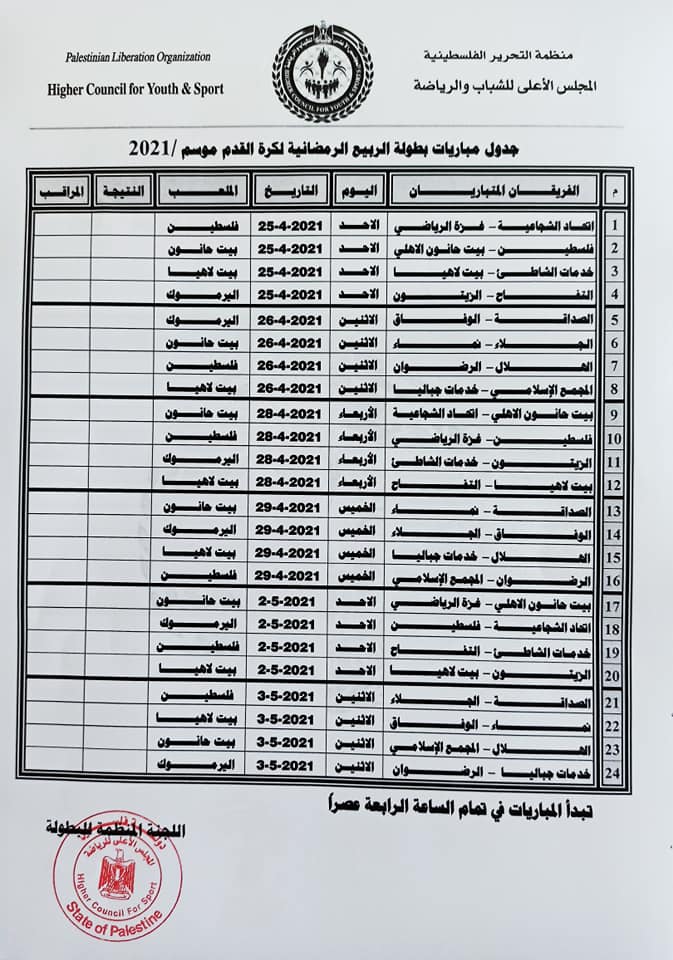 منظمة التحرير الفلسطينية
المجلس الأعلى للشباب والرياضة
Palestinian Liberation Organization
Higher Council for Youth & Sport
HIGHER COUNCIL FOR YOUTH & SPORTS
جدول مباريات بطولة الربيع الرمضانية لكرة القدم موسم /2021
م الفريقان المتباريان اليوم التاريخ الملعب النتيجة المراقب
1 اتحاد الشجاعية – غزة الرياضي الاحد 25-4-2021 فلسطين
2 فلسطين – بيت حانون الاهلي الاحد 25-4-2021 بيت حانون
3 خدمات الشاطئ – بيت لاهيا الاحد 25-4-2021 بيت لاهيا
4 التفاح – الزيتون الاحد 25-4-2021 اليرموك
5 الصداقة – الوفاق الاثنين 26-4-2021 اليرموك
6 الجلاء – نماء الاثنين 26-4-2021 بيت حانون
7 الهلال – الرضوان الاثنين 26-4-2021 فلسطين
8 المجمع الإسلامي – خدمات جباليا الاثنين 26-4-2021 بيت لاهيا
9 بيت حانون الاهلي – اتحاد الشجاعية الأربعاء 28-4-2021 بيت حانون
10 فلسطين – غزة الرياضي الأربعاء 28-4-2021 فلسطين
11 الزيتون – خدمات الشاطئ الأربعاء 28-4-2021 اليرموك
12 بيت لاهيا – التفاح الأربعاء 28-4-2021 بيت لاهيا
13 الصداقة – نماء الخميس 29-4-2021 بيت حانون
14 الوفاق – الجلاء الخميس 29-4-2021 اليرموك
15 الهلال – خدمات جباليا الخميس 29-4-2021 بيت لاهيا
16 الرضوان – المجمع الإسلامي الخميس 29-4-2021 فلسطين
17 بيت حانون الاهلي – غزة الرياضي الاحد 2-5-2021 بيت حانون
18 اتحاد الشجاعية – فلسطين الاحد 2-5-2021 اليرموك
19 خدمات الشاطئ – التفاح الاحد 2-5-2021 فلسطين
20 الزيتون – بيت لاهيا الاحد 2-5-2021 بيت لاهيا
21 الصداقة – الجلاء الاثنين 3-5-2021 فلسطين
22 نماء – الوفاق الاثنين 3-5-2021 بيت لاهيا
23 الهلال – المجمع الإسلامي الاثنين 3-5-2021 بيت حانون
24 خدمات جباليا – الرضوان الاثنين 3-5-2021 اليرموك
تبدأ المباريات في تمام الساعة الرابعة عصراً
اللجنة المنظمة للبطولة
المجلس الأعلى للرياضة
Higher Council For Sport
State of Palestine